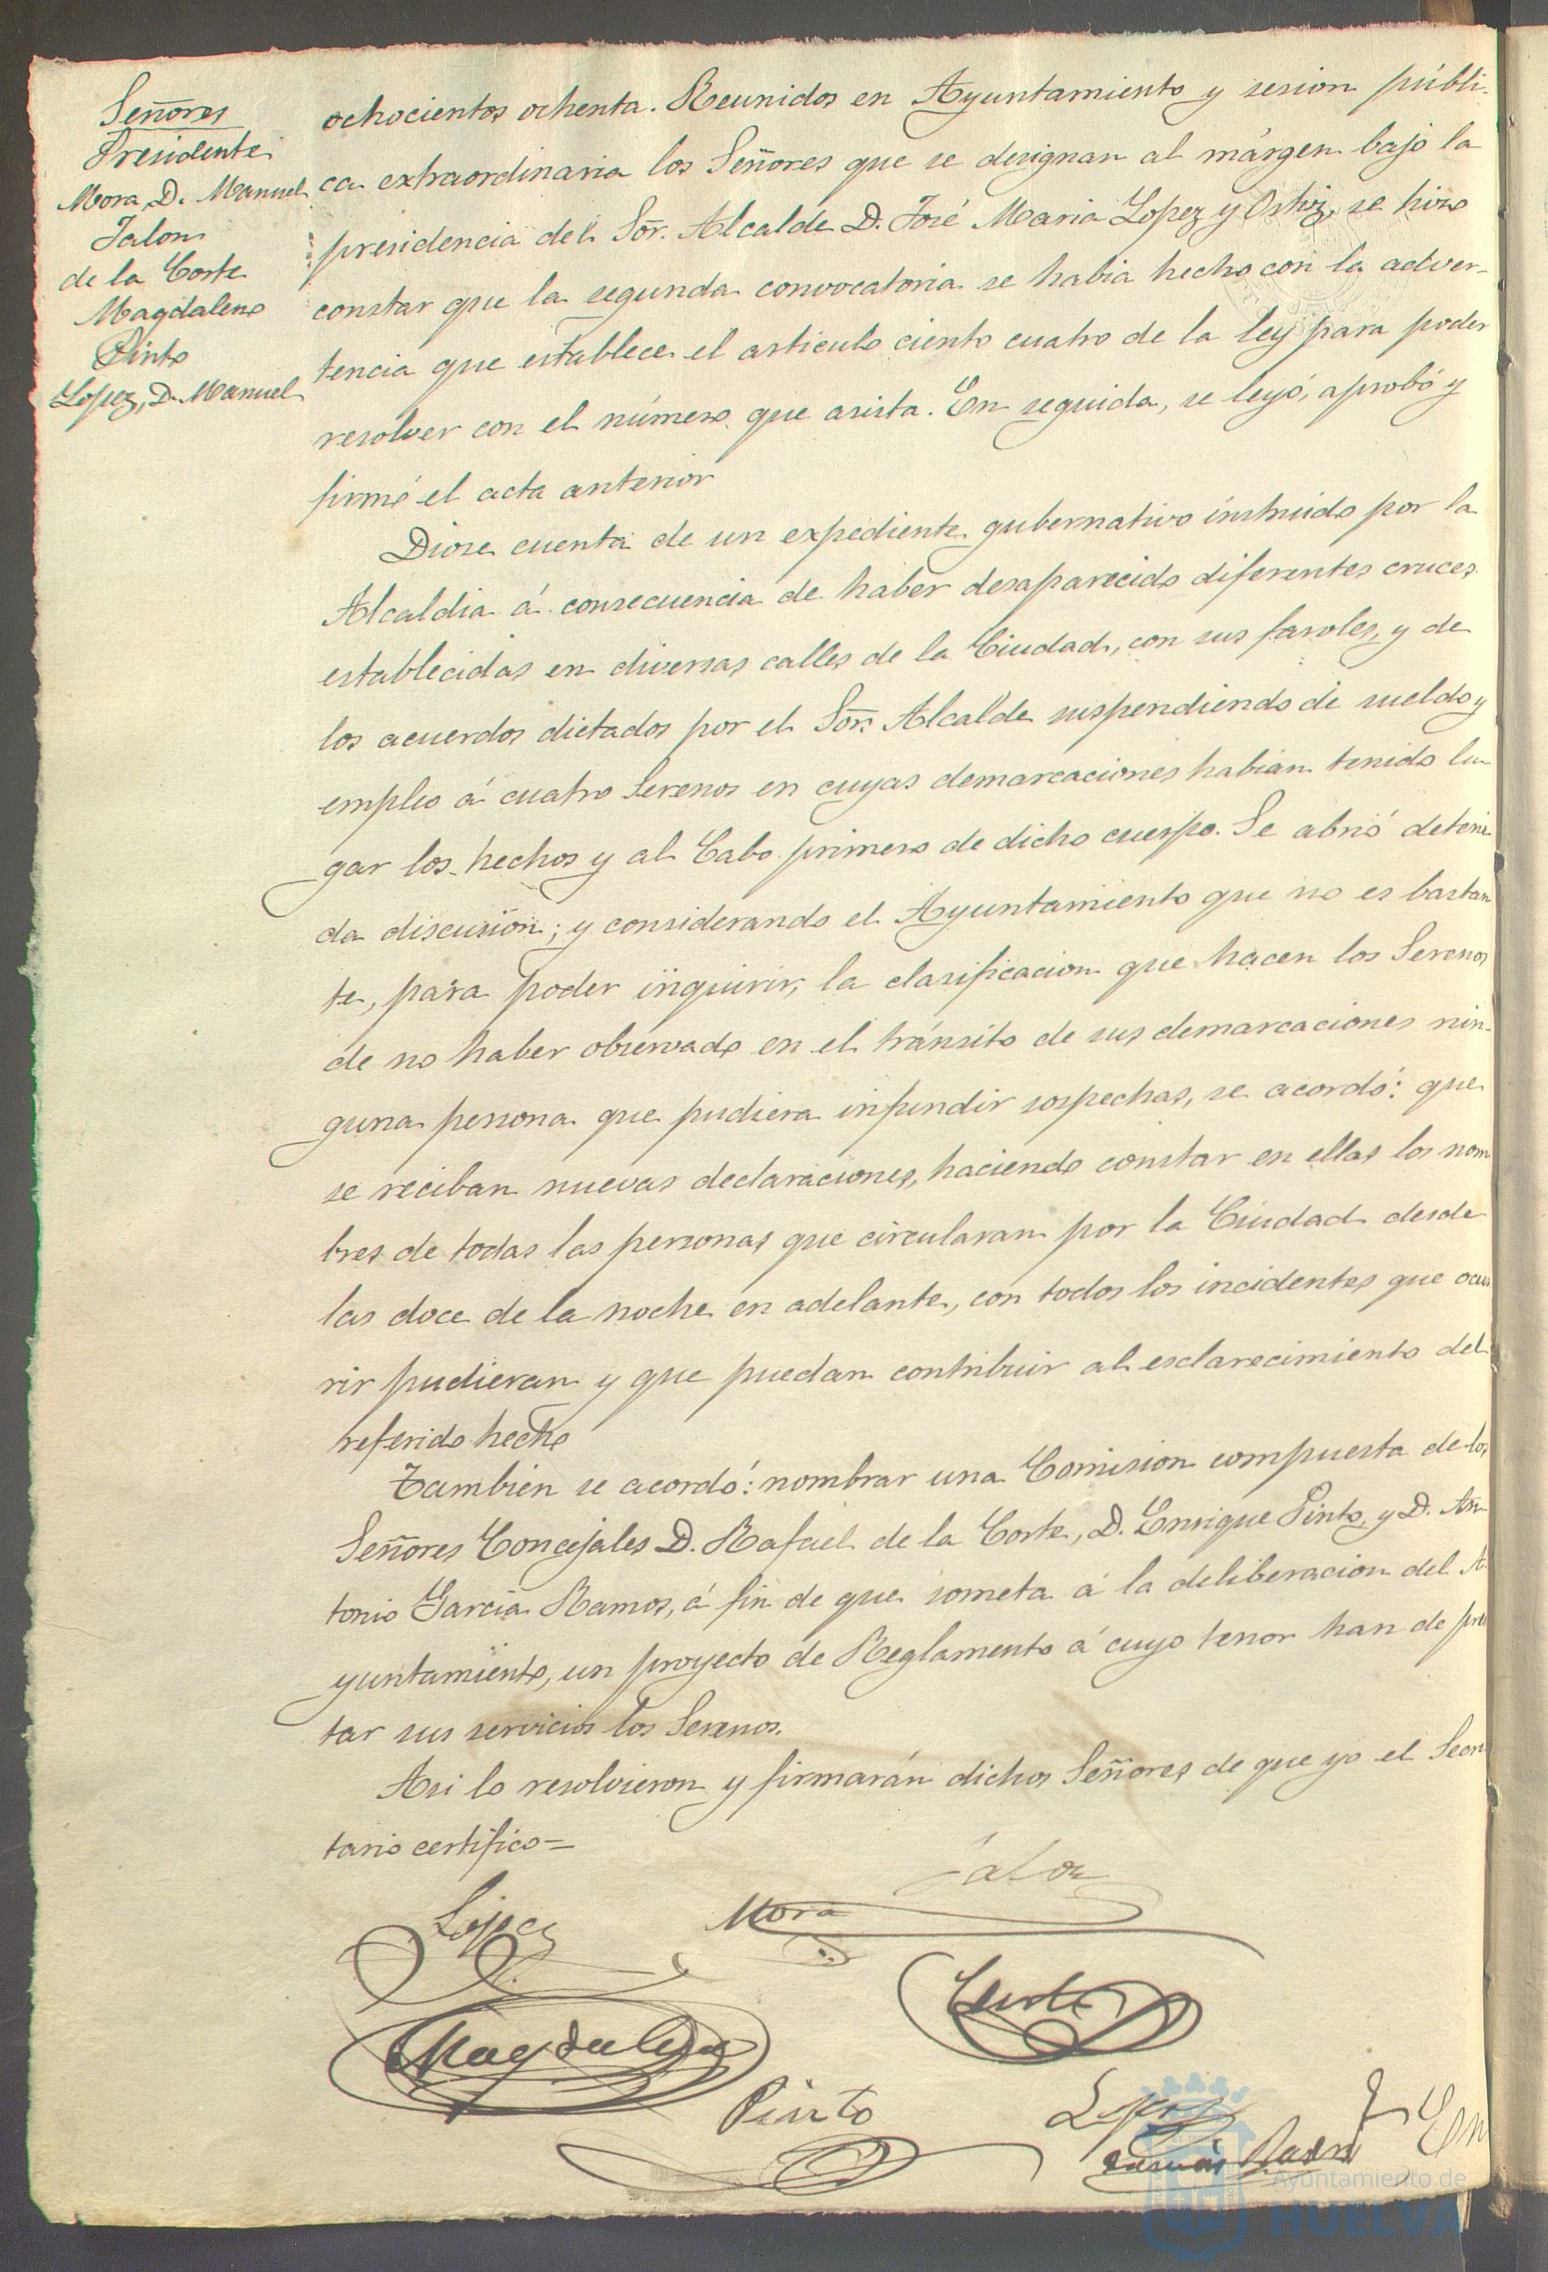 Señores
Presidente
Mora, D. Manuel
Jalon
de la Corte
Magdaleno
Pinto
Lopez, D. Manuel
ochocientos ochenta. Reunidos en Ayuntamiento y sesion públi-
ca extraordinaria los Señores que se designan al márgen bajo la
presidencia del Sor. Alcalde D. José Maria Lopez y Ortiz, se hizo
constar que la segunda convocatoria se habia hecho con la adver-
tencia que establece el articulo ciento cuatro de la ley para poder
resolver con el número que asista. En seguida, se leyó, aprobó y
firmó el acta anterior
Diose cuenta de un expediente gubernativo instruido por la
Alcaldia á consecuencia de haber desaparecido diferentes cruces
establecidas en diversas calles de la Ciudad, con sus faroles, y de
los acuerdos dictados por el Sor. Alcalde suspendiendo de sueldo y
empleo á cuatro Serenos en cuyas demarcaciones habian tenido lu-
gar los hechos y al Cabo primero de dicho cuerpo. Se abrió deteni
da discusion; y considerando el Ayuntamiento que no es bastan
te, para poder inquirir, la clasificacion que hacen los Serenos
de no haber observado en el tránsito de sus demarcaciones nin-
guna persona que pudiera infundir sospechas, se acordó: que
se reciban nuevas declaraciones, haciendo constar en ellas los nom
bres de todas las personas que circularan por la Ciudad desde
las doce de la noche en adelante, con todos los incidentes que ocur
rir pudieran y que puedan contribuir al esclarecimiento del
referido hecho
Tambien se acordó: nombrar una Comision compuesta de los
Señores Concejales D. Rafael de la Corte, D. Enrique Pinto y D. An-
tonio Garcia Ramos, á fin de que someta á la deliberacion del A-
yuntamiento, un proyecto de Reglamento á cuyo tenor han de pres
tar sus servicios los Serenos.
Asi lo resolvieron y firmarán dichos Señores de que yo el Secre
tario certifico=
Lopez
Mora
Jalon
Corte
Magdaleno
Pinto
Lopez
Ayuntamiento de
HUELVA